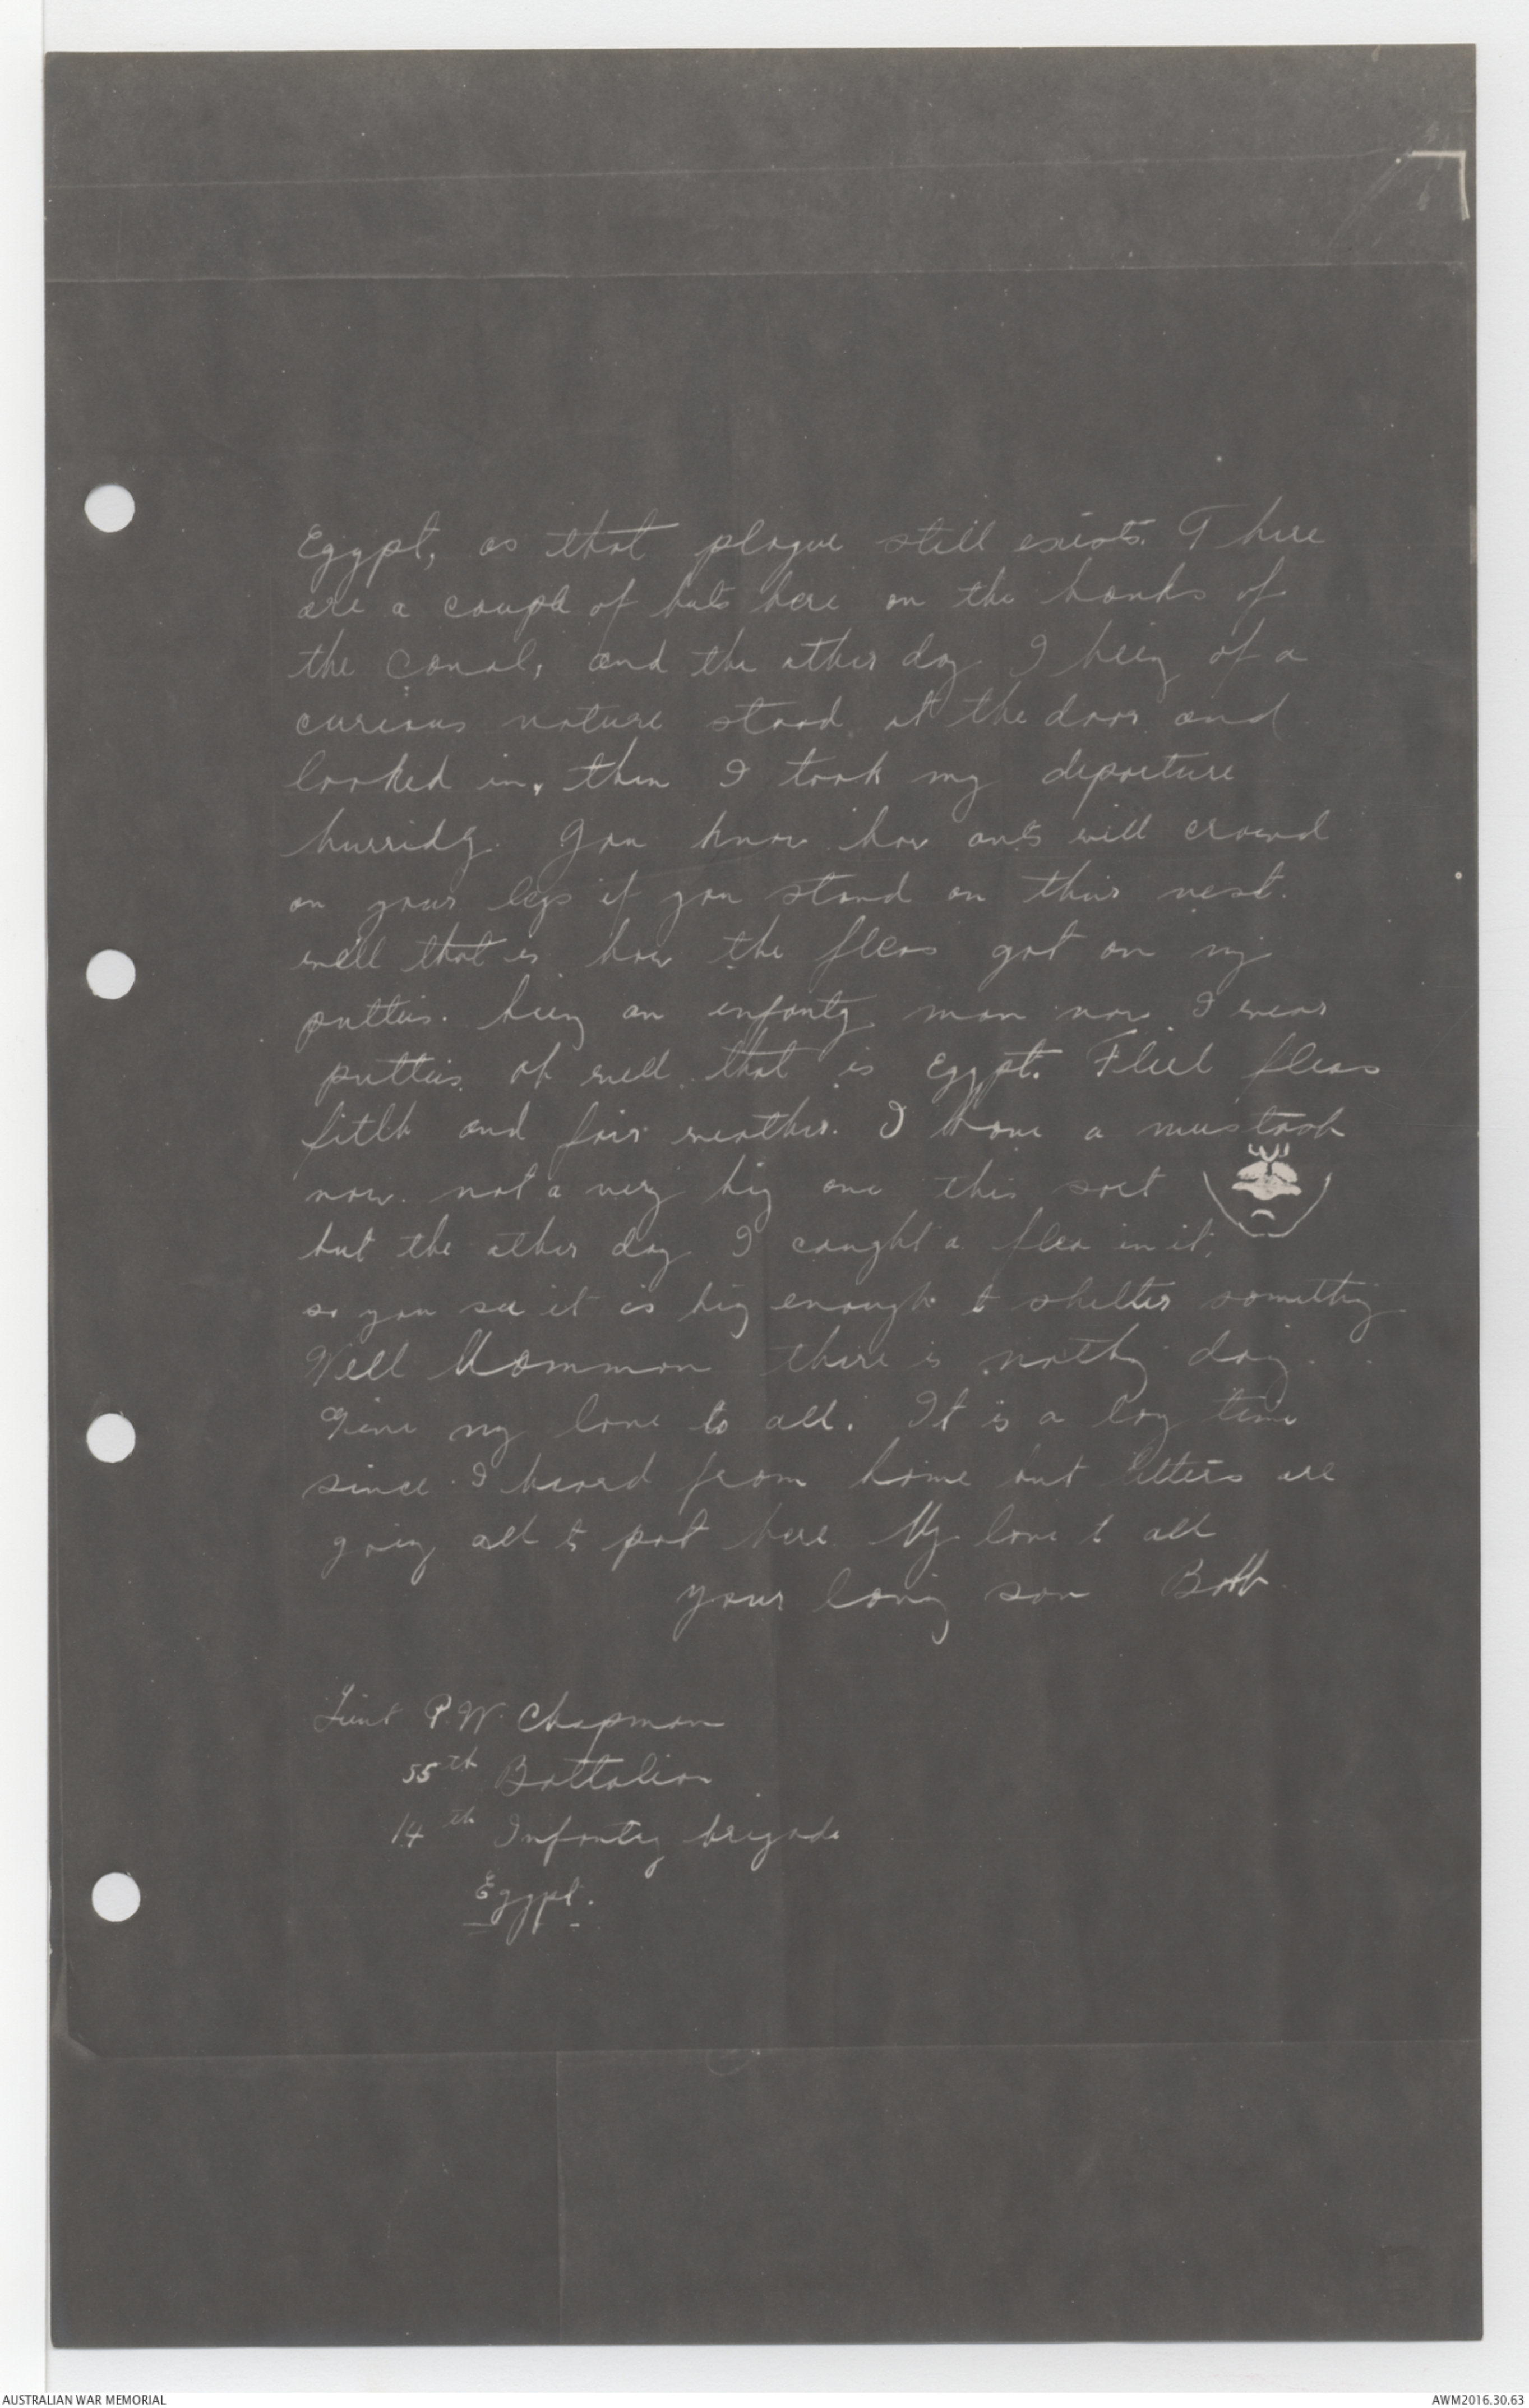 Egypt, as that plague still exists. There
are a couple of huts here on the banks of
the canal, and the other day I being of a
curious nature stood at the door and
looked in, then I took my departure
hurridly. You know how ants will crowd
on your legs if you stand on their nest.
well that is how the fleas got on my
putties. being an infantry man now I wear
putties. oh well that is Egypt.
fleas
filth and fair weather. I have a mustach
now. not a very big one this sort
but the other day I caught a flea in it,
so you see it is big enough to shelter something
Well Mamman there is nothing doing.
Give my love to all. It is a long time
since I heard from home but letters are
going all to pot here. My love to all
your loving son
Lieut P.W. Chapman
55th Battalion
14th Infantry brigade
Egypt.
AUSTRALIAN WAR MEMORIAL
AWM2016.30.63